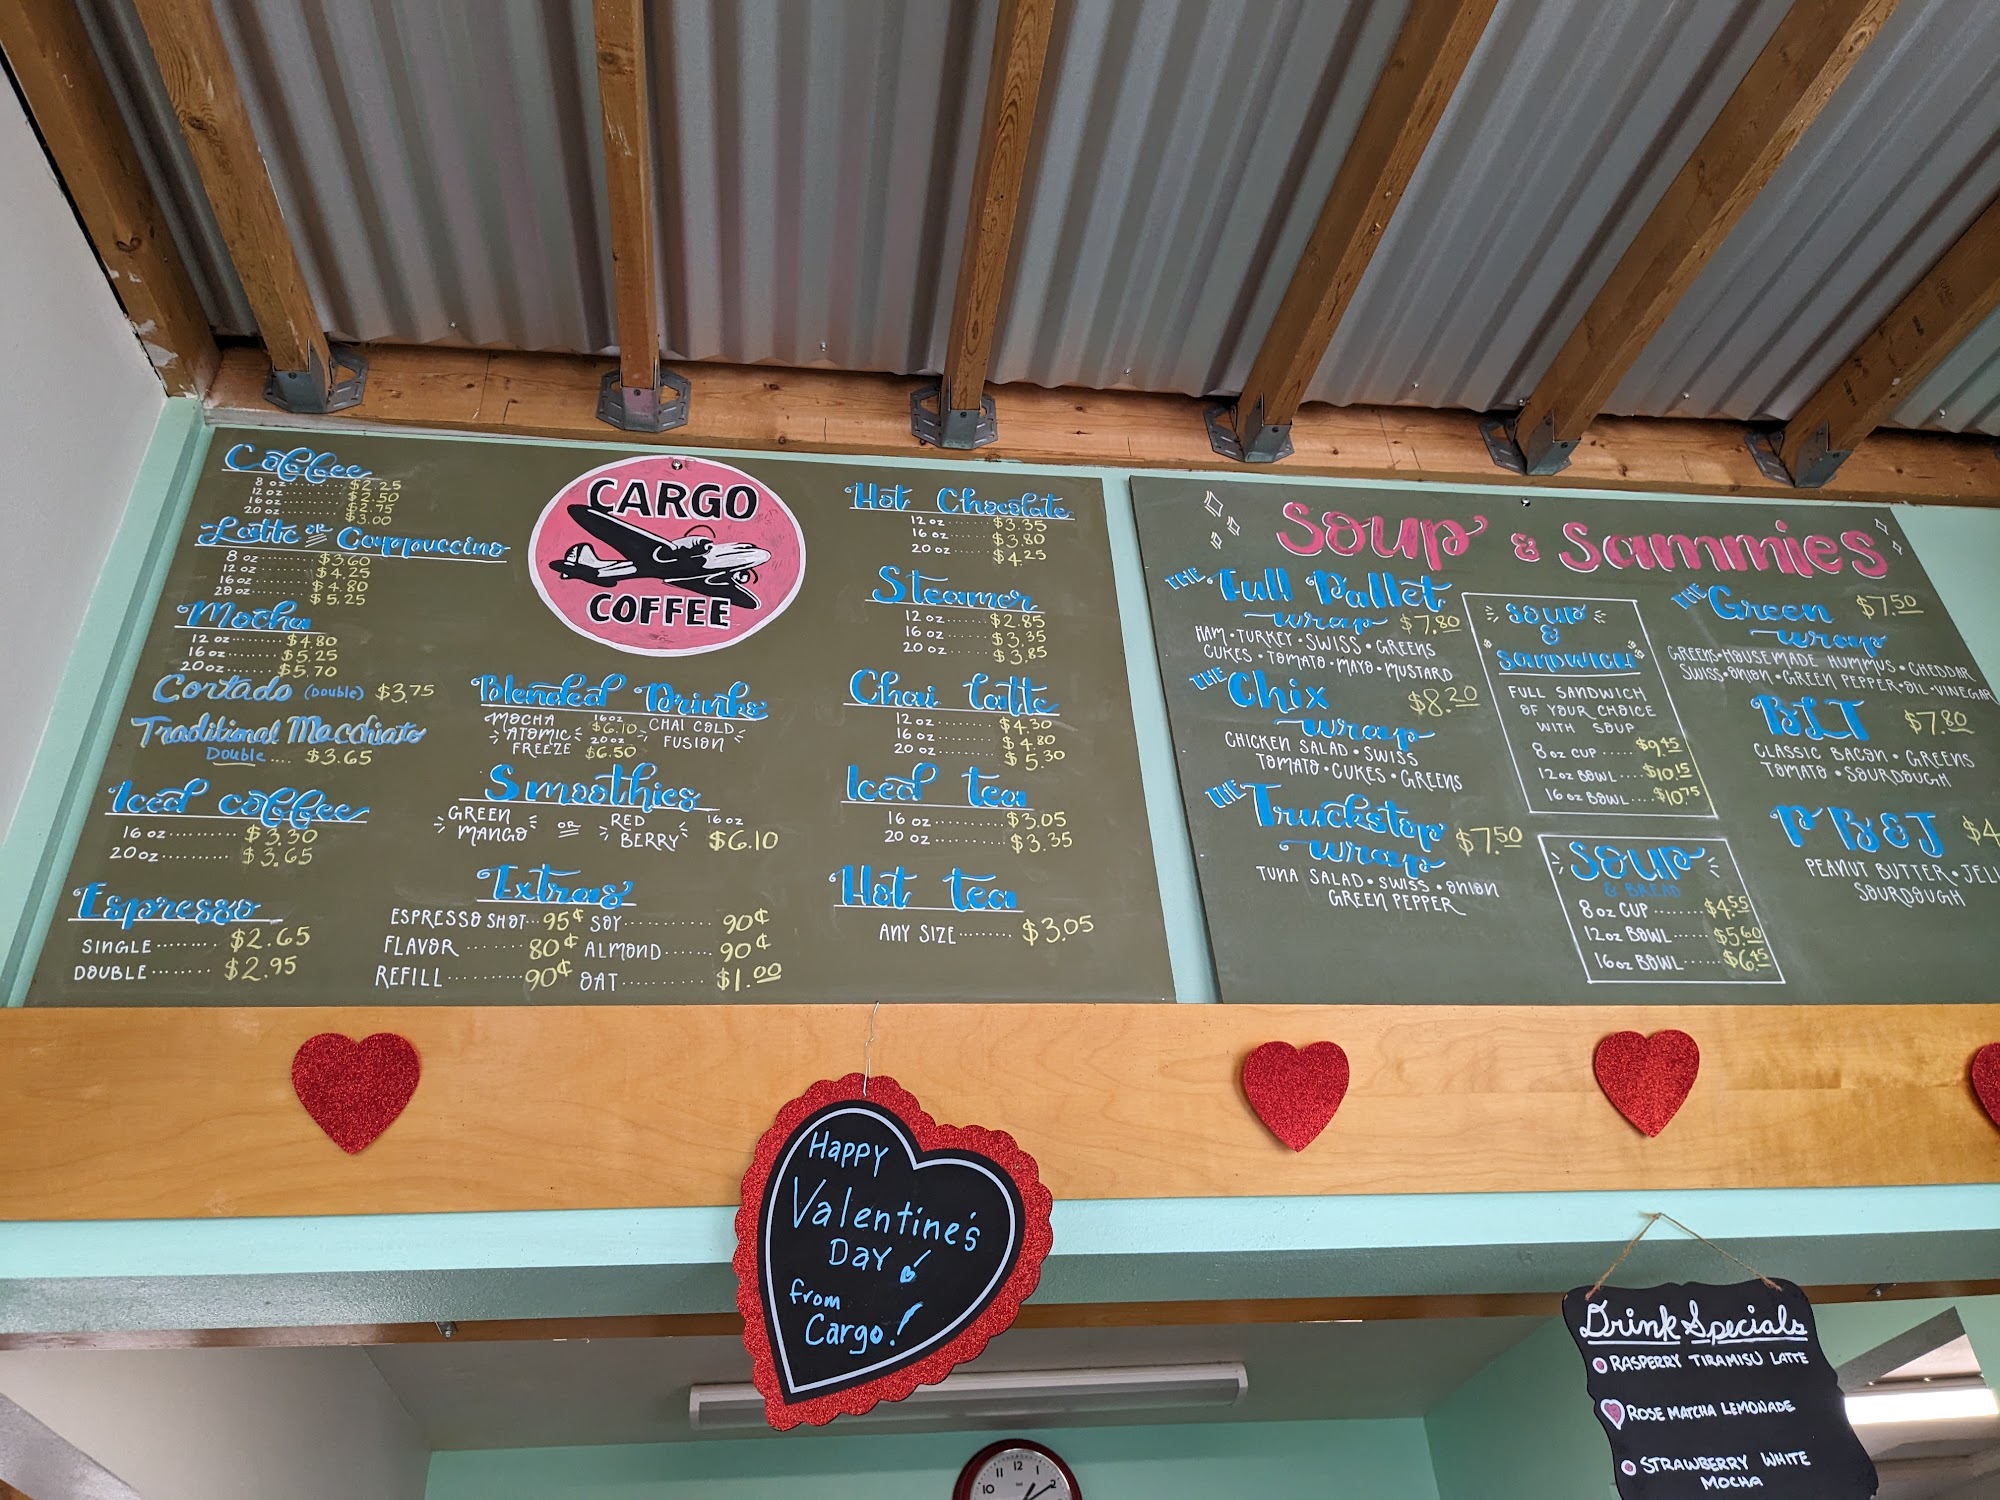 Coffee
8 oz ........ $2.25
12 oz ........ $2.50
16 oz ........ $2.75
20 oz ........ $3.00
Latte or Cappuccino
8 oz ........ $3.60
12 oz ........ $4.25
16 oz ........ $4.80
20 oz ........ $5.25
Mocha
12 oz ........ $4.80
16 oz ........ $5.25
20 oz ........ $5.70
Cortado (Double) $3.75
Traditional Macchiato
Double .... $3.65
Iced coffee
16 oz .......... $3.30
20 oz .......... $3.65
Espresso
SINGLE ........ $2.65
DOUBLE ........ $2.95
CARGO
COFFEE
Blended Drinks
MOCHA ATOMIC FREEZE
16 oz $6.10
20 oz $6.50
CHAI COLD FUSION
Smoothies
GREEN MANGO OR RED BERRY 16 oz $6.10
Extras
ESPRESSO SHOT ... 95¢ SOY .......... 90¢
FLAVOR ....... 80¢ ALMOND ...... 90¢
REFILL .......... 90¢ OAT .......... $1.00
Hot Chocolate
12 oz ...... $3.35
16 oz ...... $3.80
20 oz ...... $4.25
Steamer
12 oz ........ $2.85
16 oz ........ $3.35
20 oz ........ $3.85
Chai latte
12 oz ........ $4.30
16 oz ........ $4.80
20 oz ........ $5.30
Iced tea
16 oz .......... $3.05
20 oz .......... $3.35
Hot tea
ANY SIZE ........ $3.05
Soup & Sammies
THE Full Pallet
wrap $7.80
HAM • TURKEY • SWISS • GREENS
CUKES • TOMATO • MAYO • MUSTARD
THE Chix $8.20
wrap
CHICKEN SALAD • SWISS
TOMATO • CUKES • GREENS
THE Truckstop $7.50
wrap
TUNA SALAD • SWISS • ONION
GREEN PEPPER
SOUP
&
SANDWICH
FULL SANDWICH
OF YOUR CHOICE
WITH SOUP
8 oz CUP ..... $9.45
12 oz BOWL .... $10.15
16 oz BOWL .... $10.75
SOUP
& BREAD
8 oz CUP ....... $4.55
12 oz BOWL ...... $5.60
16 oz BOWL ...... $6.45
THE Green $7.50
wrap
GREENS • HOUSEMADE HUMMUS • CHEDDAR
SWISS • ONION • GREEN PEPPER • OIL • VINEGAR
BLT $7.80
CLASSIC BACON • GREENS
TOMATO • SOURDOUGH
PB&J $4
PEANUT BUTTER • JELL
SOURDOUGH
Happy
Valentine's
Day!
from
Cargo!
Drink Specials
RASPERRY TIRAMISU LATTE
ROSE MATCHA LEMONADE
STRAWBERRY WHITE
MOCHA
10 11 12 1 2